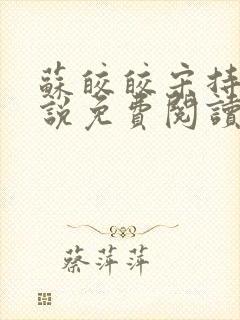 蘇皎皎宋持
說免費閱讀
蔡萍萍